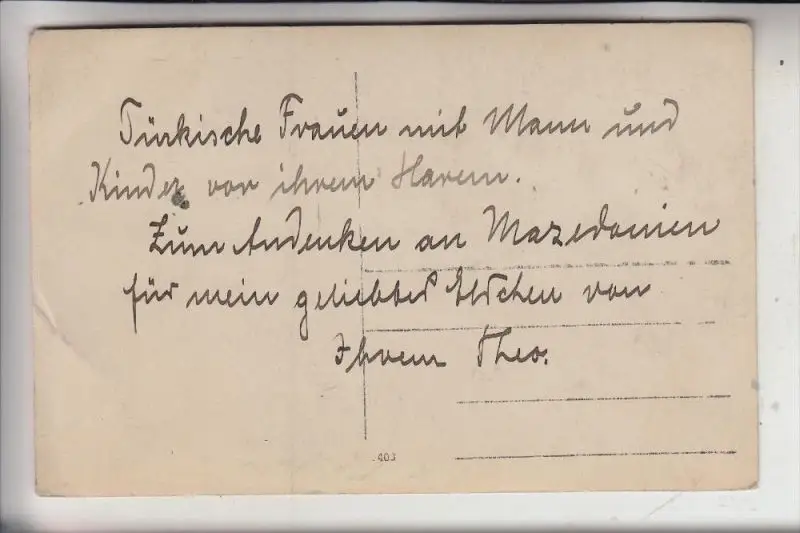 Türkische Frauen mit Mann und
Kinder vor ihrem Harem.
Zum Andenken an Mazedonien
für mein geliebtes Elschen von
Ihrem Theo.
403